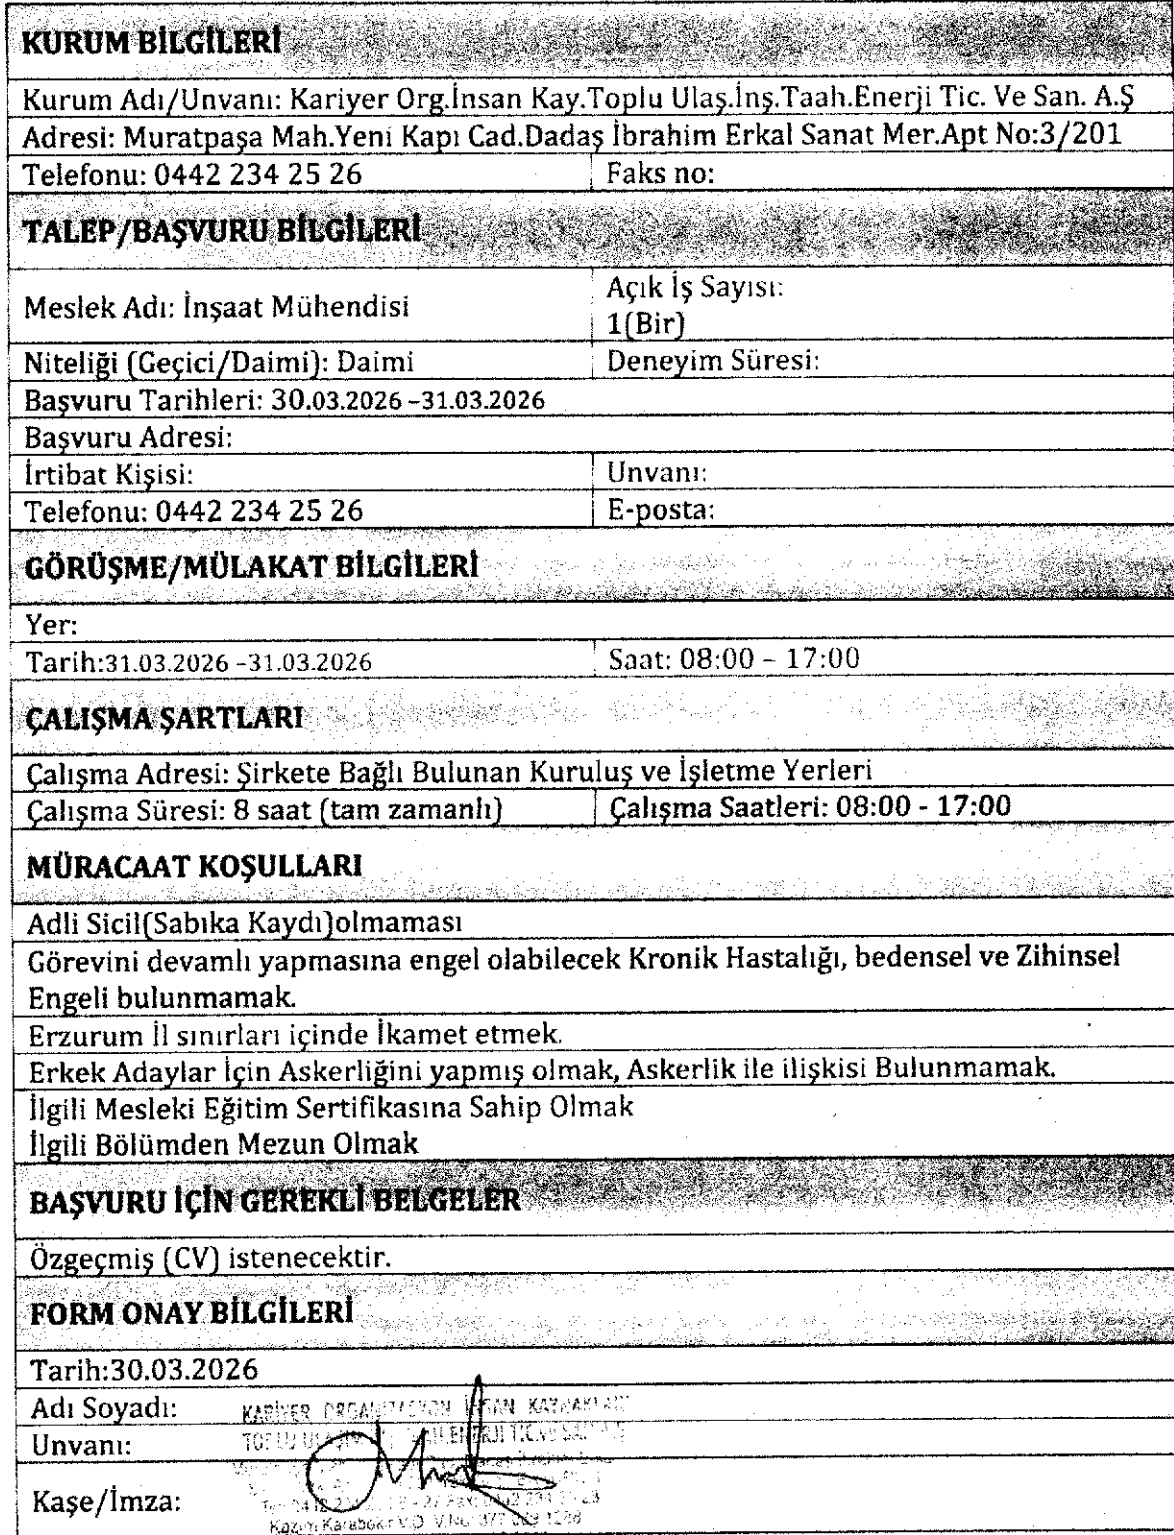 KURUM BİLGİLERİ
Kurum Adı/Unvanı: Kariyer Org.İnsan Kay.Toplu Ulaş.İnş.Taah.Enerji Tic. Ve San. A.Ş
Adresi: Muratpaşa Mah.Yeni Kapı Cad.Dadaş İbrahim Erkal Sanat Mer.Apt No:3/201
Telefonu: 0442 234 25 26 Faks no:
TALEP/BAŞVURU BİLGİLERİ
Meslek Adı: İnşaat Mühendisi
Açık İş Sayısı:
1(Bir)
Niteliği (Geçici/Daimi): Daimi Deneyim Süresi:
Başvuru Tarihleri: 30.03.2026 –31.03.2026
Başvuru Adresi:
İrtibat Kişisi: Unvanı:
Telefonu: 0442 234 25 26 E-posta:
GÖRÜŞME/MÜLAKAT BİLGİLERİ
Yer:
Tarih:31.03.2026 –31.03.2026 Saat: 08:00 – 17:00
ÇALIŞMA ŞARTLARI
Çalışma Adresi: Şirkete Bağlı Bulunan Kuruluş ve İşletme Yerleri
Çalışma Süresi: 8 saat (tam zamanlı) Çalışma Saatleri: 08:00 - 17:00
MÜRACAAT KOŞULLARI
Adli Sicil(Sabıka Kaydı)olmaması
Görevini devamlı yapmasına engel olabilecek Kronik Hastalığı, bedensel ve Zihinsel
Engeli bulunmamak.
Erzurum İl sınırları içinde İkamet etmek.
Erkek Adaylar İçin Askerliğini yapmış olmak, Askerlik ile ilişkisi Bulunmamak.
İlgili Mesleki Eğitim Sertifikasına Sahip Olmak
İlgili Bölümden Mezun Olmak
BAŞVURU İÇİN GEREKLİ BELGELER
Özgeçmiş (CV) istenecektir.
FORM ONAY BİLGİLERİ
Tarih:30.03.2026
Adı Soyadı:
KARİYER ORGANİZASYON İNSAN KAYNAKLARI
Unvanı:
Kaşe/İmza:
Kazım Karabekir V.D.